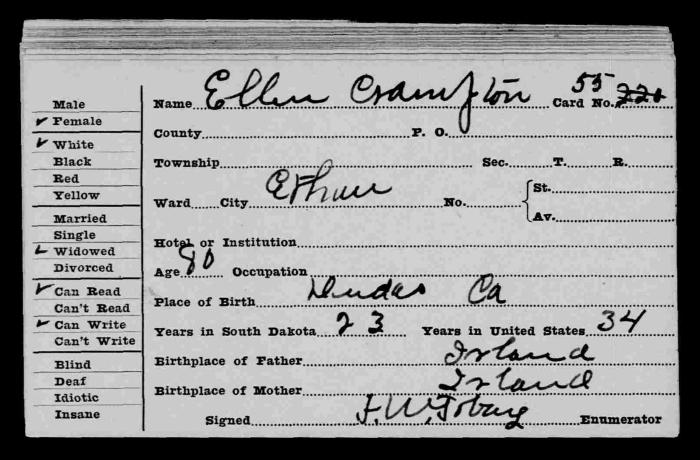 Male
✓ Female
✓ White
Black
Red
Yellow
Married
Single
✓ Widowed
Divorced
✓ Can Read
Can't Read
✓ Can Write
Can't Write
Blind
Deaf
Idiotic
Insane
Name Ellen Crampton Card No. 55 220
County P. O.
Township Sec. T. R.
Ward City Ethan No. { St. Av.
Hotel or Institution
Age 80 Occupation
Place of Birth Dundas Ca
Years in South Dakota 23 Years in United States 34
Birthplace of Father Irland
Birthplace of Mother Irland
Signed J. W. Enumerator